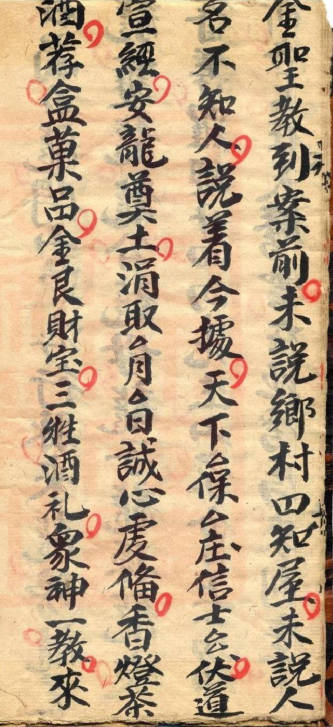 金聖教到案前未説鄉村田知屋未説人
名不知人説着今據天下厶保厶庄信士厶伏道
宣經安龍奠土涓取厶月厶日誠心虔俻香燈茶
酒荐盒菓品金艮財宝三牲酒礼衆神一教來